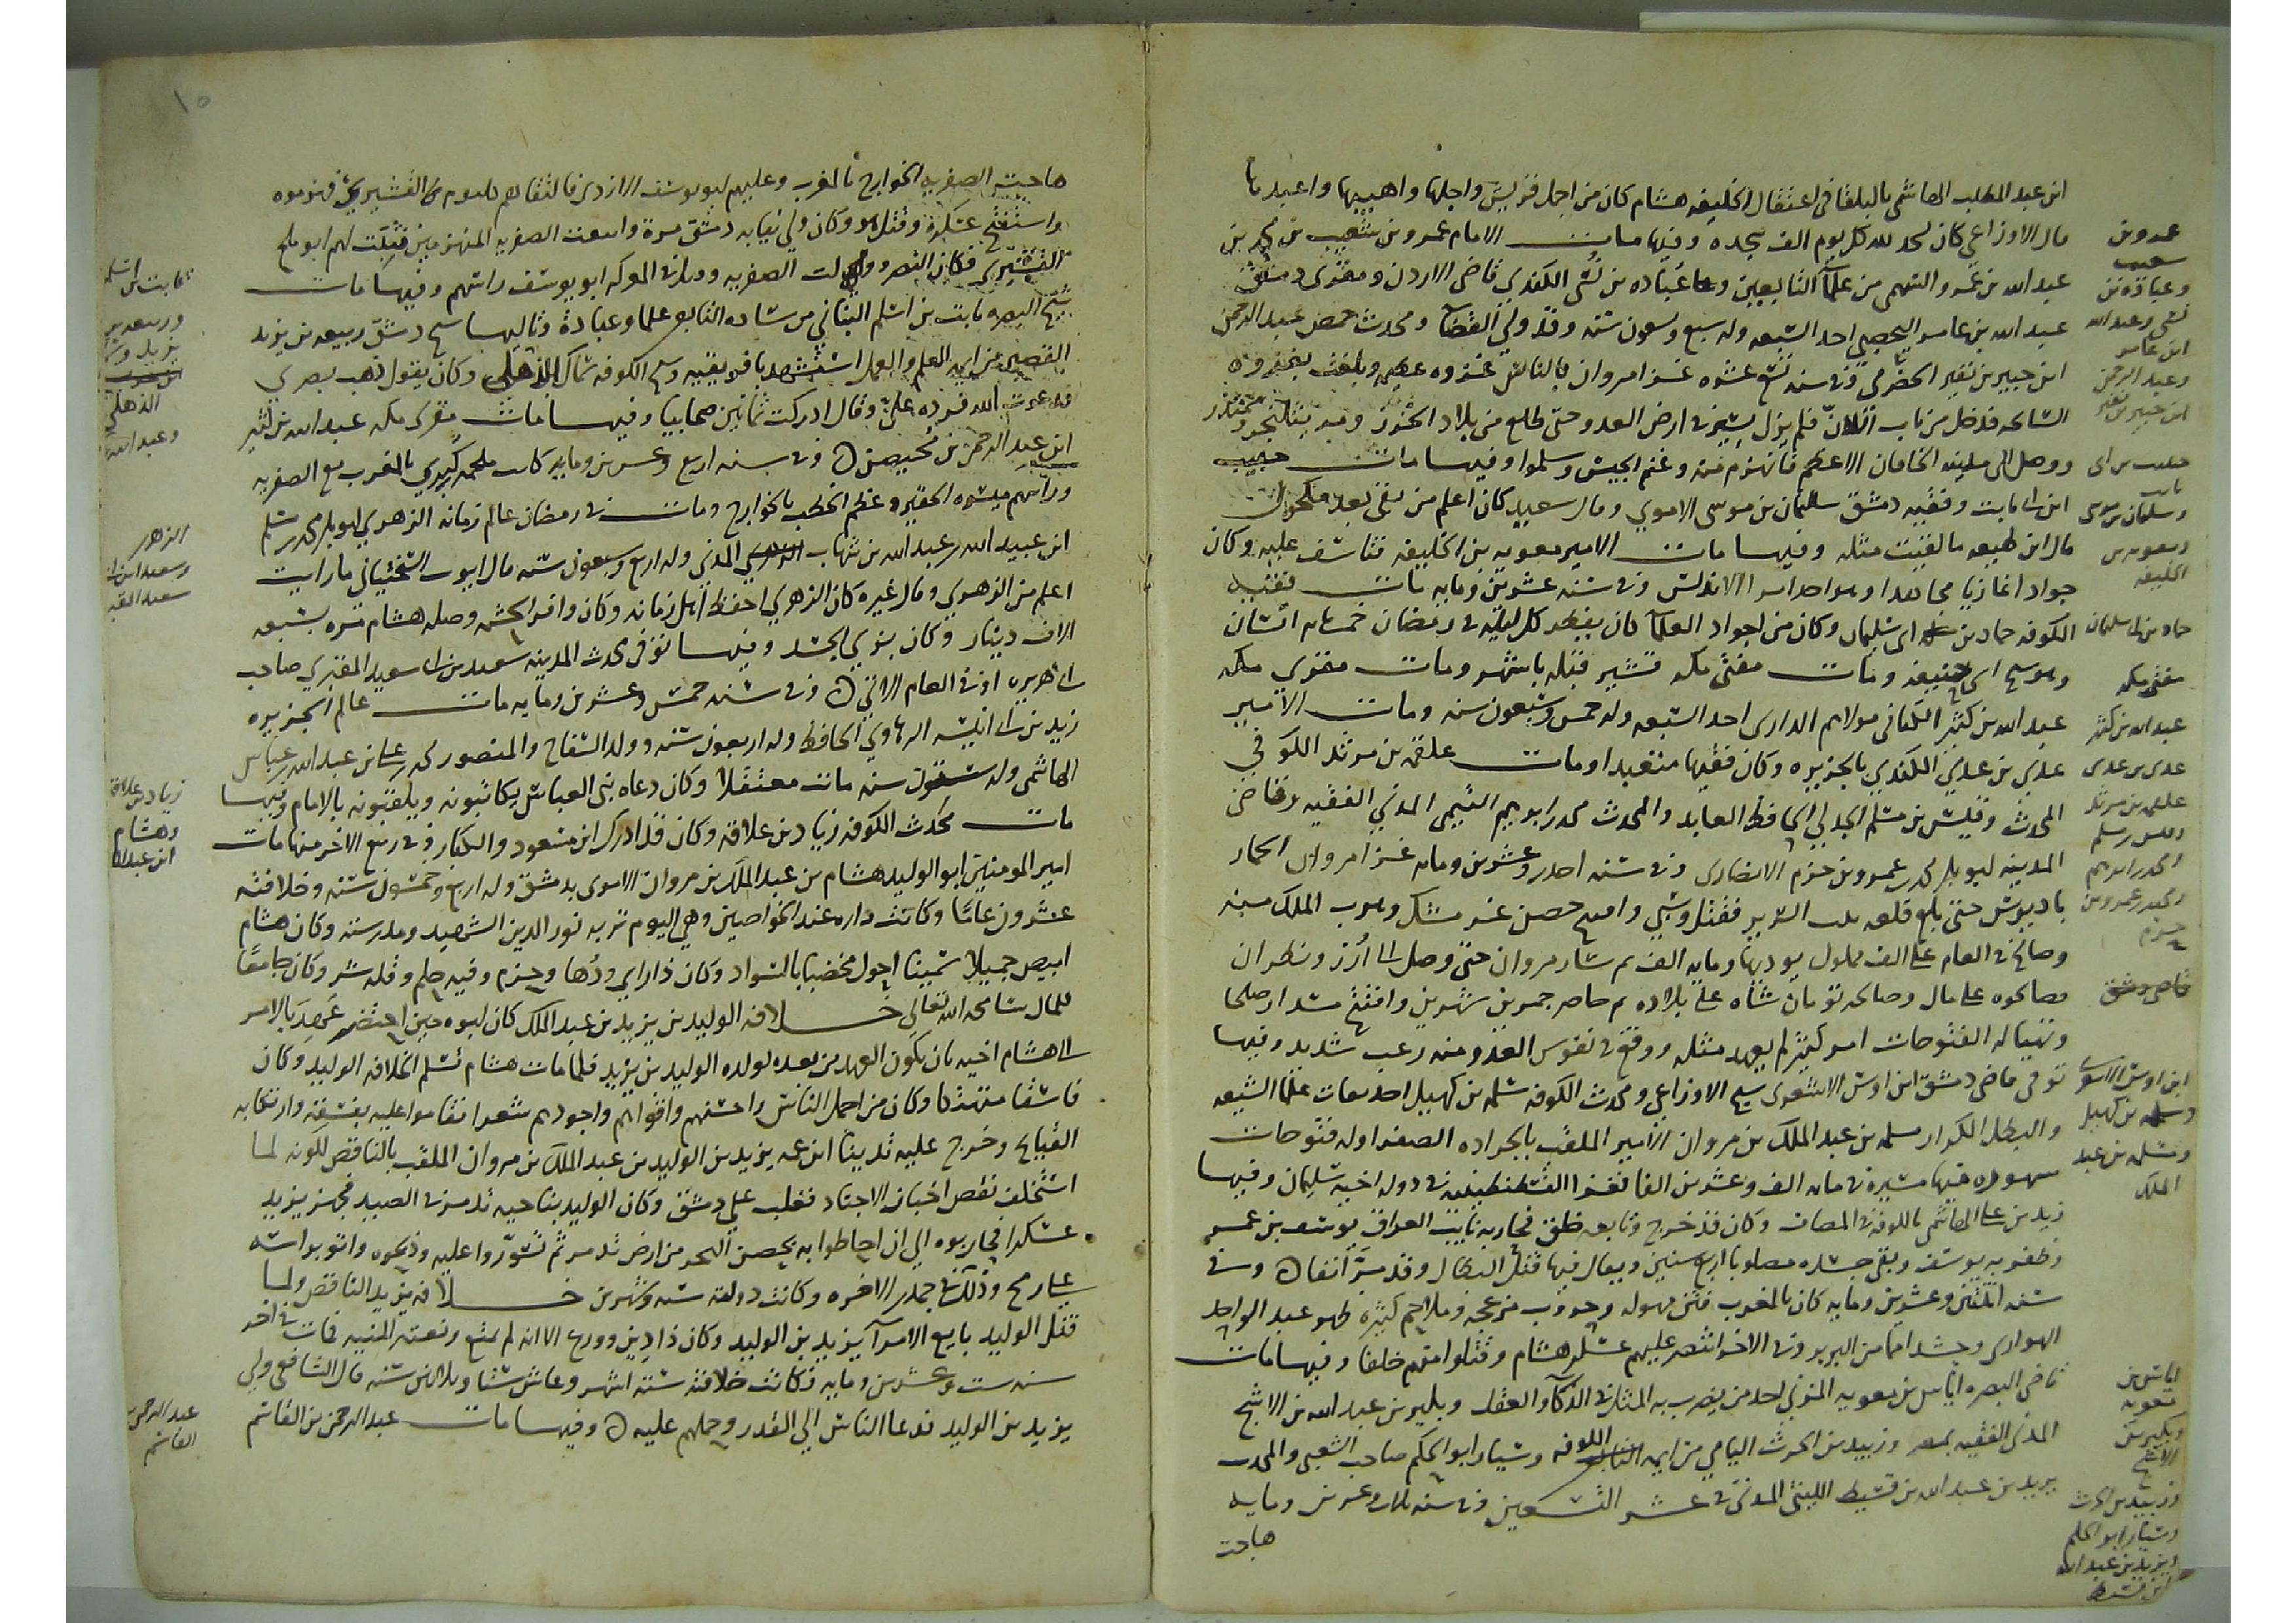 ابن عبد المطلب الهاشمي بالبلقا في اعتقال الخليفه هشام كان من اجمل قريش واجلها واهيبها واعبدها
قال الاوزاعي كان يسجد لله كل يوم الف سجده وفيها مات الامام عمرو بن شعيب بن محمد بن
عبد الله بن عمرو السهمي من علمآ التابعين وعباده بن نُسَى الكندي قاضي الاردن ومفتى دمشق
عبد الله بن عامر اليحصبي احد السبعه وله سبع وتسعون سنه وقد ولي القضآ ومحدث حمص عبد الرحمن
ابن جبير بن نفير الحضرمي وفي سنه تسع عشره غزا مروان بالناس غزوه عظيمه
السايحه فدخل من باب اللان فلم يزل يسير في ارض العدو حتى طلع من بلاد الخزر ومر ببلنجر وسمندر
ووصل الى مدينه الخاقان الاعظم فانهزم منه وغنم الجيش وسلموا وفيها مات حبيب
ابن ابي ثابت وفقيه دمشق سليمان بن موسى الاموي وقال سعيد كان اعلم من بقي بعد مكحول
قال ابن لهيعه ما لقيت مثله وفيها مات الامير معويه بن الخليفه فتاسف عليه وكان
جوادا غازيا مجاهدا وهو احد امرا الاندلس وفي سنه عشرين ومايه مات فقيه
الكوفه حماد بن ابي سليمان وكان من اجواد العلمآ كان يفطر كل ليله في رمضان خمسمايه انسان
وهو شيخ ابي حنيفه ومات مفتى مكه قيس قبله باشهر ومات مقري مكه
عبد الله بن كثير الكناني مولاهم الدارى احد السبعه وله خمس وسبعون سنه ومات الامير
عدي بن عدي الكندي بالجزيره وكان فقيها متعبدا ومات علقمه بن مرثد الكوفي
المحدث وقيس بن مسلم الجدلي الحافظ العابد والمحدث محمد بن ابرهيم التيمي المدني الفقيه وقاضى
المدينه ابو بكر بن محمد بن عمرو بن حزم الانصارى وفي سنه احدى وعشرين ومايه غزا مروان الحمار
بالجيوش حتى بلغ قلعه بيت السرير فقتل وسبي وافتتح حصن غومشك وهرب الملك منه
وصالح في العام على الف مملوك يوديها ومايه الف ثم سار مروان حتى وصل الى ارز ونطران
فصالحوه على مال وصالحه تومان شاه على بلاده ثم حاصر حمزين شهرين وافتتح مسدار صلحا
وتهيا له الفتوحات امر كثير لم يعهد مثله ووقع في نفوس العدو منه رعب شديد وفيها
توفي قاضي دمشق ابن اوس الاشعري شيخ الاوزاعي ومحدث الكوفه سلمه بن كهيل احد علما الشيعه
والبطل الكرار مسلمه بن عبد الملك بن مروان الامير الملقب بالجراده الصفرا وله فتوحات
مشهوره منها مسيره في مايه الف وعشرين الفا فغزا القسطنطينيه في دوله اخيه سليمان وفيها
زيد بن علي الهاشمي بالكوفه في المصاف وكان قد خرج وتابعه خلق فحاربه نايب العراق يوسف بن عمر
وظفر به يوسف وبقي جسده مصلوبا اربع سنين ويقال فيها قتل البطال وقد مرَّ انفا وفي
سنه اثنتين وعشرين ومايه كان بالمغرب فتن مهوله وحروب مزعجه وملاحم كبيره ظهر عبد الواحد
الهوارى وحشد امما من البربر وفي الاخر انتصر عليهم عسكر هشام وقتلوا منهم خلقا وفيها مات
قاضي البصره اياس بن معويه المزني احد من يضرب به المثل في الذكآ والعقل وبكير بن عبد الله بن الاشج
المدني الفقيه بمصر وزبيد بن الحرث اليامي من ايمه الكوفه وسيار ابو الحكم صاحب الشعبي والمحدث
يزيد بن عبد الله بن قسيط الليثي المدني في عشر التسعين وفي سنه ثلاث وعشرين ومايه
هاجت
عمرو بن
شعيب
وعباده بن
نسى وعبد الله
ابن عامر
وعبد الرحمن
ابن جبير بن نفير
حبيب بن ابي
ثابت
وسليمان بن موسى
ومعويه بن
الخليفه
حماد بن ابي سليمان
مفتي مكه
عبد الله بن كثير
عدى بن عدى
علقمه بن مرثد
وقيس بن مسلم
ومحمد بن ابرهيم
ومحمد بن عمرو بن
حزم
قاضي دمشق
ابن اوس الاشعري
وسلمه بن كهيل
ومسلمه بن عبد
الملك
اياس بن
معويه
وبكير بن
الاشج
وزبيد بن الحرث
وسيار ابو الحكم
ويزيد بن عبد الله
ابن قسيط
١٥
هاجت الصفريه الخوارج بالمغرب وعليهم ابو يوسف الازدي فالتقاهم كلثوم بن القشيري فهزموه
واستبيح عسكره وقتل هو وكان ولي نيابه دمشق مره واتبعت الصفريه المنهزمين فثبت لهم ابو بلج
القشيري فكان النصر وولت الصفريه وقتل في المعركه ابو يوسف راسهم وفيها مات
شيخ البصره ثابت بن اسلم البناني من ساده التابعين علما وعبادة وتالها وشيخ دمشق ربيعه بن يزيد
القصير من ايمه العلم والعمل استشهد بافريقيه وشيخ الكوفه سماك الذهلي وكان يقول ذهب بصري
فدعوت الله فرده علىّ وقال ادركت ثمانين صحابيا وفيها مات مقرى مكه عبد الله بن كثير
ابن عبد الرحمن بن مُحيصن وفي سنه اربع وعشرين ومايه كانت ملحمه كبري بالمغرب مع الصفريه
وراسهم ميسره الحقير وعظم الخطب بالخوارج ومات في رمضان عالم زمانه الزهري ابو بكر محمد بن مسلم
ابن عبيد الله بن عبد الله بن شهاب المدني وله اربع وسبعون سنه قال ايوب السختياني ما رايت
اعلم من الزهري وقال غيره كان الزهري احفظ اهل زمانه وكان وافر الحشمه وصله هشام مره بسبعه
الاف دينار وكان بزي الجند وفيها توفي محدث المدينه سعيد بن ابي سعيد المقبري صاحب
ابي هريره او في العام الاتي وفي سنه خمس وعشرين ومايه مات عالم الجزيره
زيد بن ابي انيسه الرهاوي الحافظ وله اربعون سنه ووالد السفاح والمنصور محمد بن علي بن عبد الله بن عباس
الهاشمي وله ستون سنه مات معتقلا وكان دعاه بني العباس يكاتبونه ويلقبونه بالامام وفيها
مات محدث الكوفه زياد بن علاقه وكان قد ادرك ابن مسعود والكبار وفي ربيع الاخر منها مات
امير المومنين ابو الوليد هشام بن عبد الملك بن مروان الاموى بدمشق وله اربع وخمسون سنه وخلافته
عشرون عاما وكانت داره عند الخواصين وهي اليوم تربه نور الدين الشهيد ومدرسته وكان هشام
ابيض جميلا سمينا احول مخضبا بالسواد وكان ذا راي ودُها وحزم وفيه حلم وقله شر وكان جامعًا
للمال سامحه الله تعالى خلافه الوليد بن يزيد بن عبد الملك كان ابوه حين احتضر عَهِدَ بالامر
الى هشام اخيه بان يكون العهد من بعده لولده الوليد بن يزيد فلما مات هشام تسلم الخلافه الوليد وكان
فاسقا متهتكا وكان من اجمل الناس واحسنهم واقواهم واجودهم شعرا فقاموا عليه بفسقه وارتكابه
القبايح وخرج عليه تدينا ابن عمه يزيد بن الوليد بن عبد الملك بن مروان الملقب بالناقص لكونه لما
استخلف نقص اخباز الاجناد فغلب علي دمشق وكان الوليد بناحيه تدمر في الصيد فجهز يزيد
عسكرا فحاربوه الي ان احاطوا به بحصن البحر من ارض تدمر ثم تسوّروا عليه وذبحوه واتو براسه
على رمح وذلك في جمادى الاخره وكانت دولته سنه وشهرين خلافه يزيد الناقص ولما
قتل الوليد بايع الامرآ يزيد بن الوليد وكان ذا دين وورع الا انه لم يمتع وبغتته المنيه فمات في اخر
سنه ست وعشرين ومايه فكانت خلافته سته اشهر وعاش ستا وثلاثين سنه قال الشافعي ولي
يزيد بن الوليد فدعا الناس الي القدر وحملهم عليه وفيها مات عبد الرحمن بن القاسم
ثابت بن اسلم
وربيعه بن
يزيد
الذهلي
وعبد الله
الزهري
وسعيد ابن ابي
سعيد المقبري
زياد بن علاقه
وهشام
ابن عبد الملك
عبد الرحمن بن
القاسم